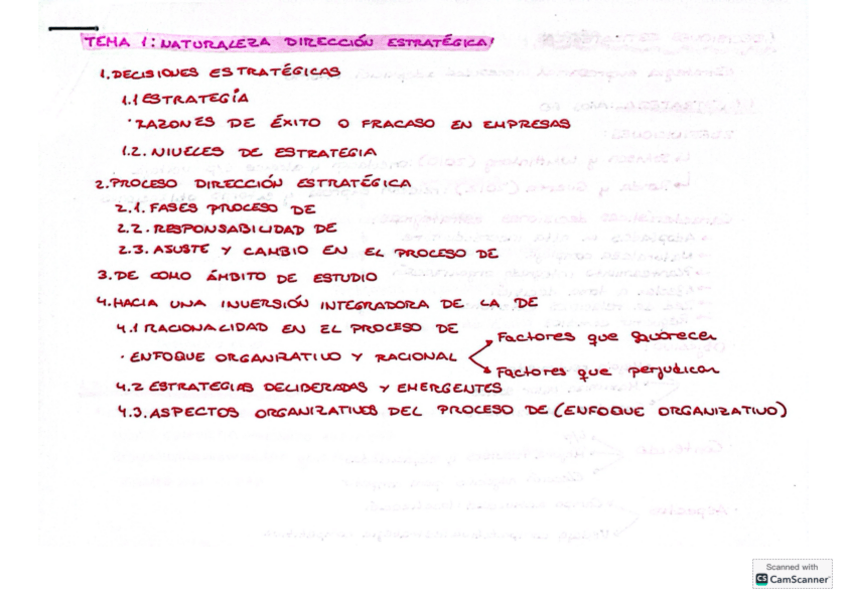 TEMA 1: NATURALEZA DIRECCIÓN ESTRATÉGICA
1. DECISIONES ESTRATÉGICAS
1.1 ESTRATEGIA
· RAZONES DE ÉXITO O FRACASO EN EMPRESAS
1.2. NIVELES DE ESTRATEGIA
2. PROCESO DIRECCIÓN ESTRATÉGICA
2.1. FASES PROCESO DE
2.2. RESPONSABILIDAD DE
2.3. AJUSTE Y CAMBIO EN EL PROCESO DE
3. DE COMO ÁMBITO DE ESTUDIO
4. HACIA UNA INVERSIÓN INTEGRADORA DE LA DE
4.1 RACIONALIDAD EN EL PROCESO DE
· ENFOQUE ORGANIZATIVO Y RACIONAL
Factores que favorecen
Factores que perjudican
4.2 ESTRATEGIAS DELIBERADAS Y EMERGENTES
4.3. ASPECTOS ORGANIZATIVOS DEL PROCESO DE (ENFOQUE ORGANIZATIVO)
Scanned with
CS CamScanner